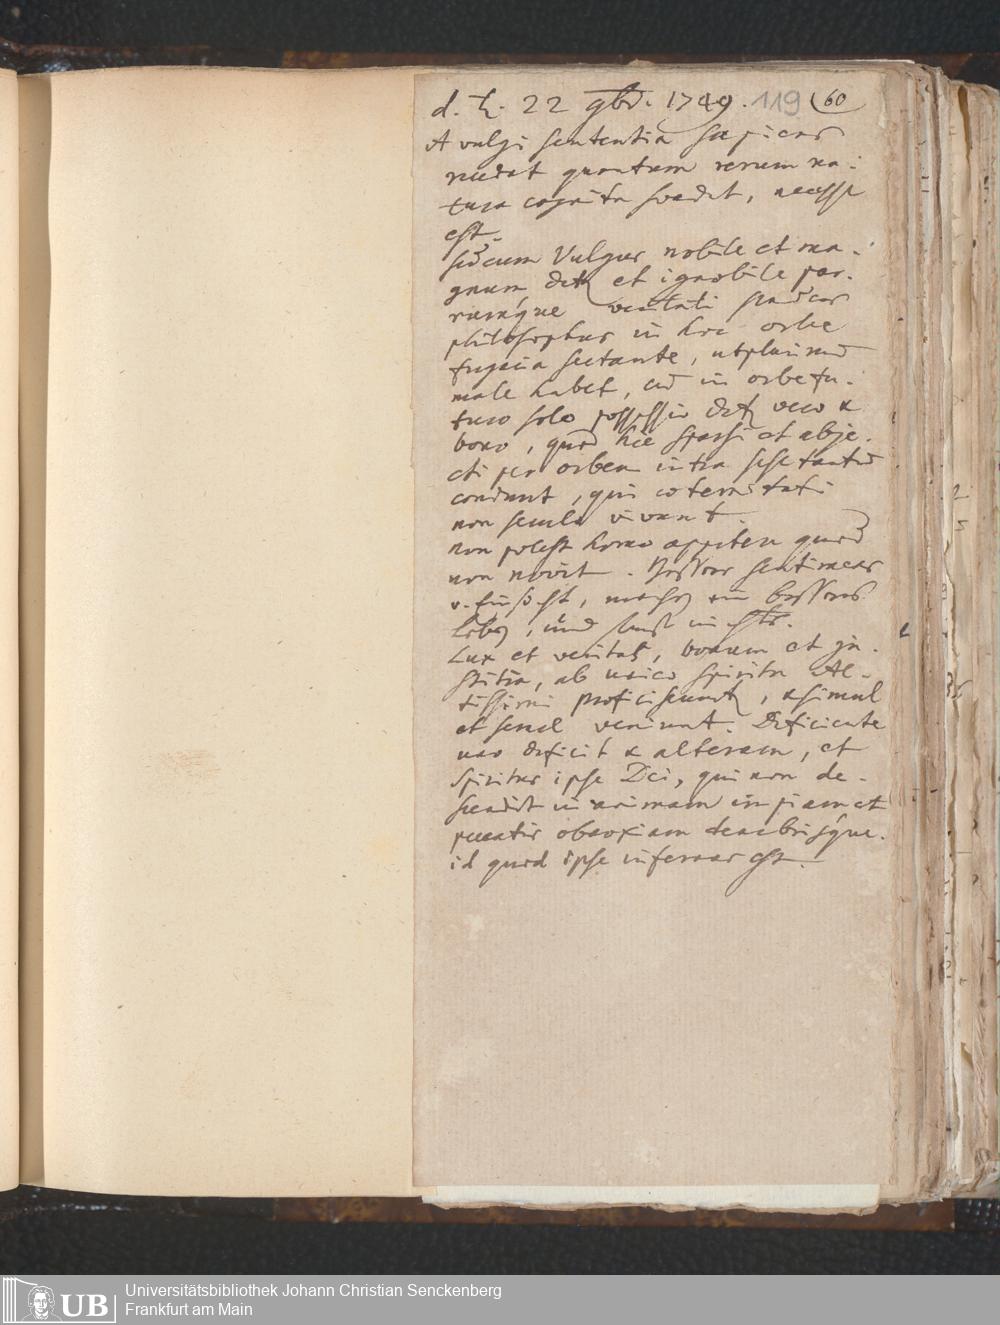 d. ♄. 22 9br. 1749. 119 (60
A vulgi sententia sapiens
recedat quantum rerum na-
tura cognita svadet, necesse
est.
secum Vulgus nobile et ma-
gnum det et ignobile par-
vumque veritati
philosophus in hoc orbe
fugacia sectante, utplurimū
male habet, cū in orbe fu-
turo solo possessio detʒ vero &
bono, quod hic sparsi et abje-
cti per orbem intra sese tantū
condunt, qui aeternitati
non seculo vivunt.
non potest homo appetere quod
non novit. Bessere sentimens
v. einsicht, machen ein besseres
leben, und sonst nichts.
Lux et veritas, bonum et ju-
stitia, ab unico spiritu Al-
tissimi proficiscuntʒ, & simul
et semel veniunt. Deficiente
uno deficit & alterum, et
Spiritus ipse Dei, qui non de-
scendit in animam impiam et
peccatis obnoxiam tenebrisque.
id quod ipse infernus est.
UB
Universitätsbibliothek Johann Christian Senckenberg
Frankfurt am Main